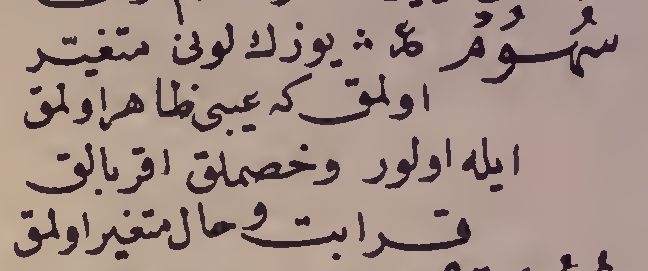 سُهُومٌ ع م ∴ يوزك لونى متغير
اولمق كه عيبى ظاهر اولمق
ايله اولور وخصملق اقربالق
قرابت وحال متغير اولمق